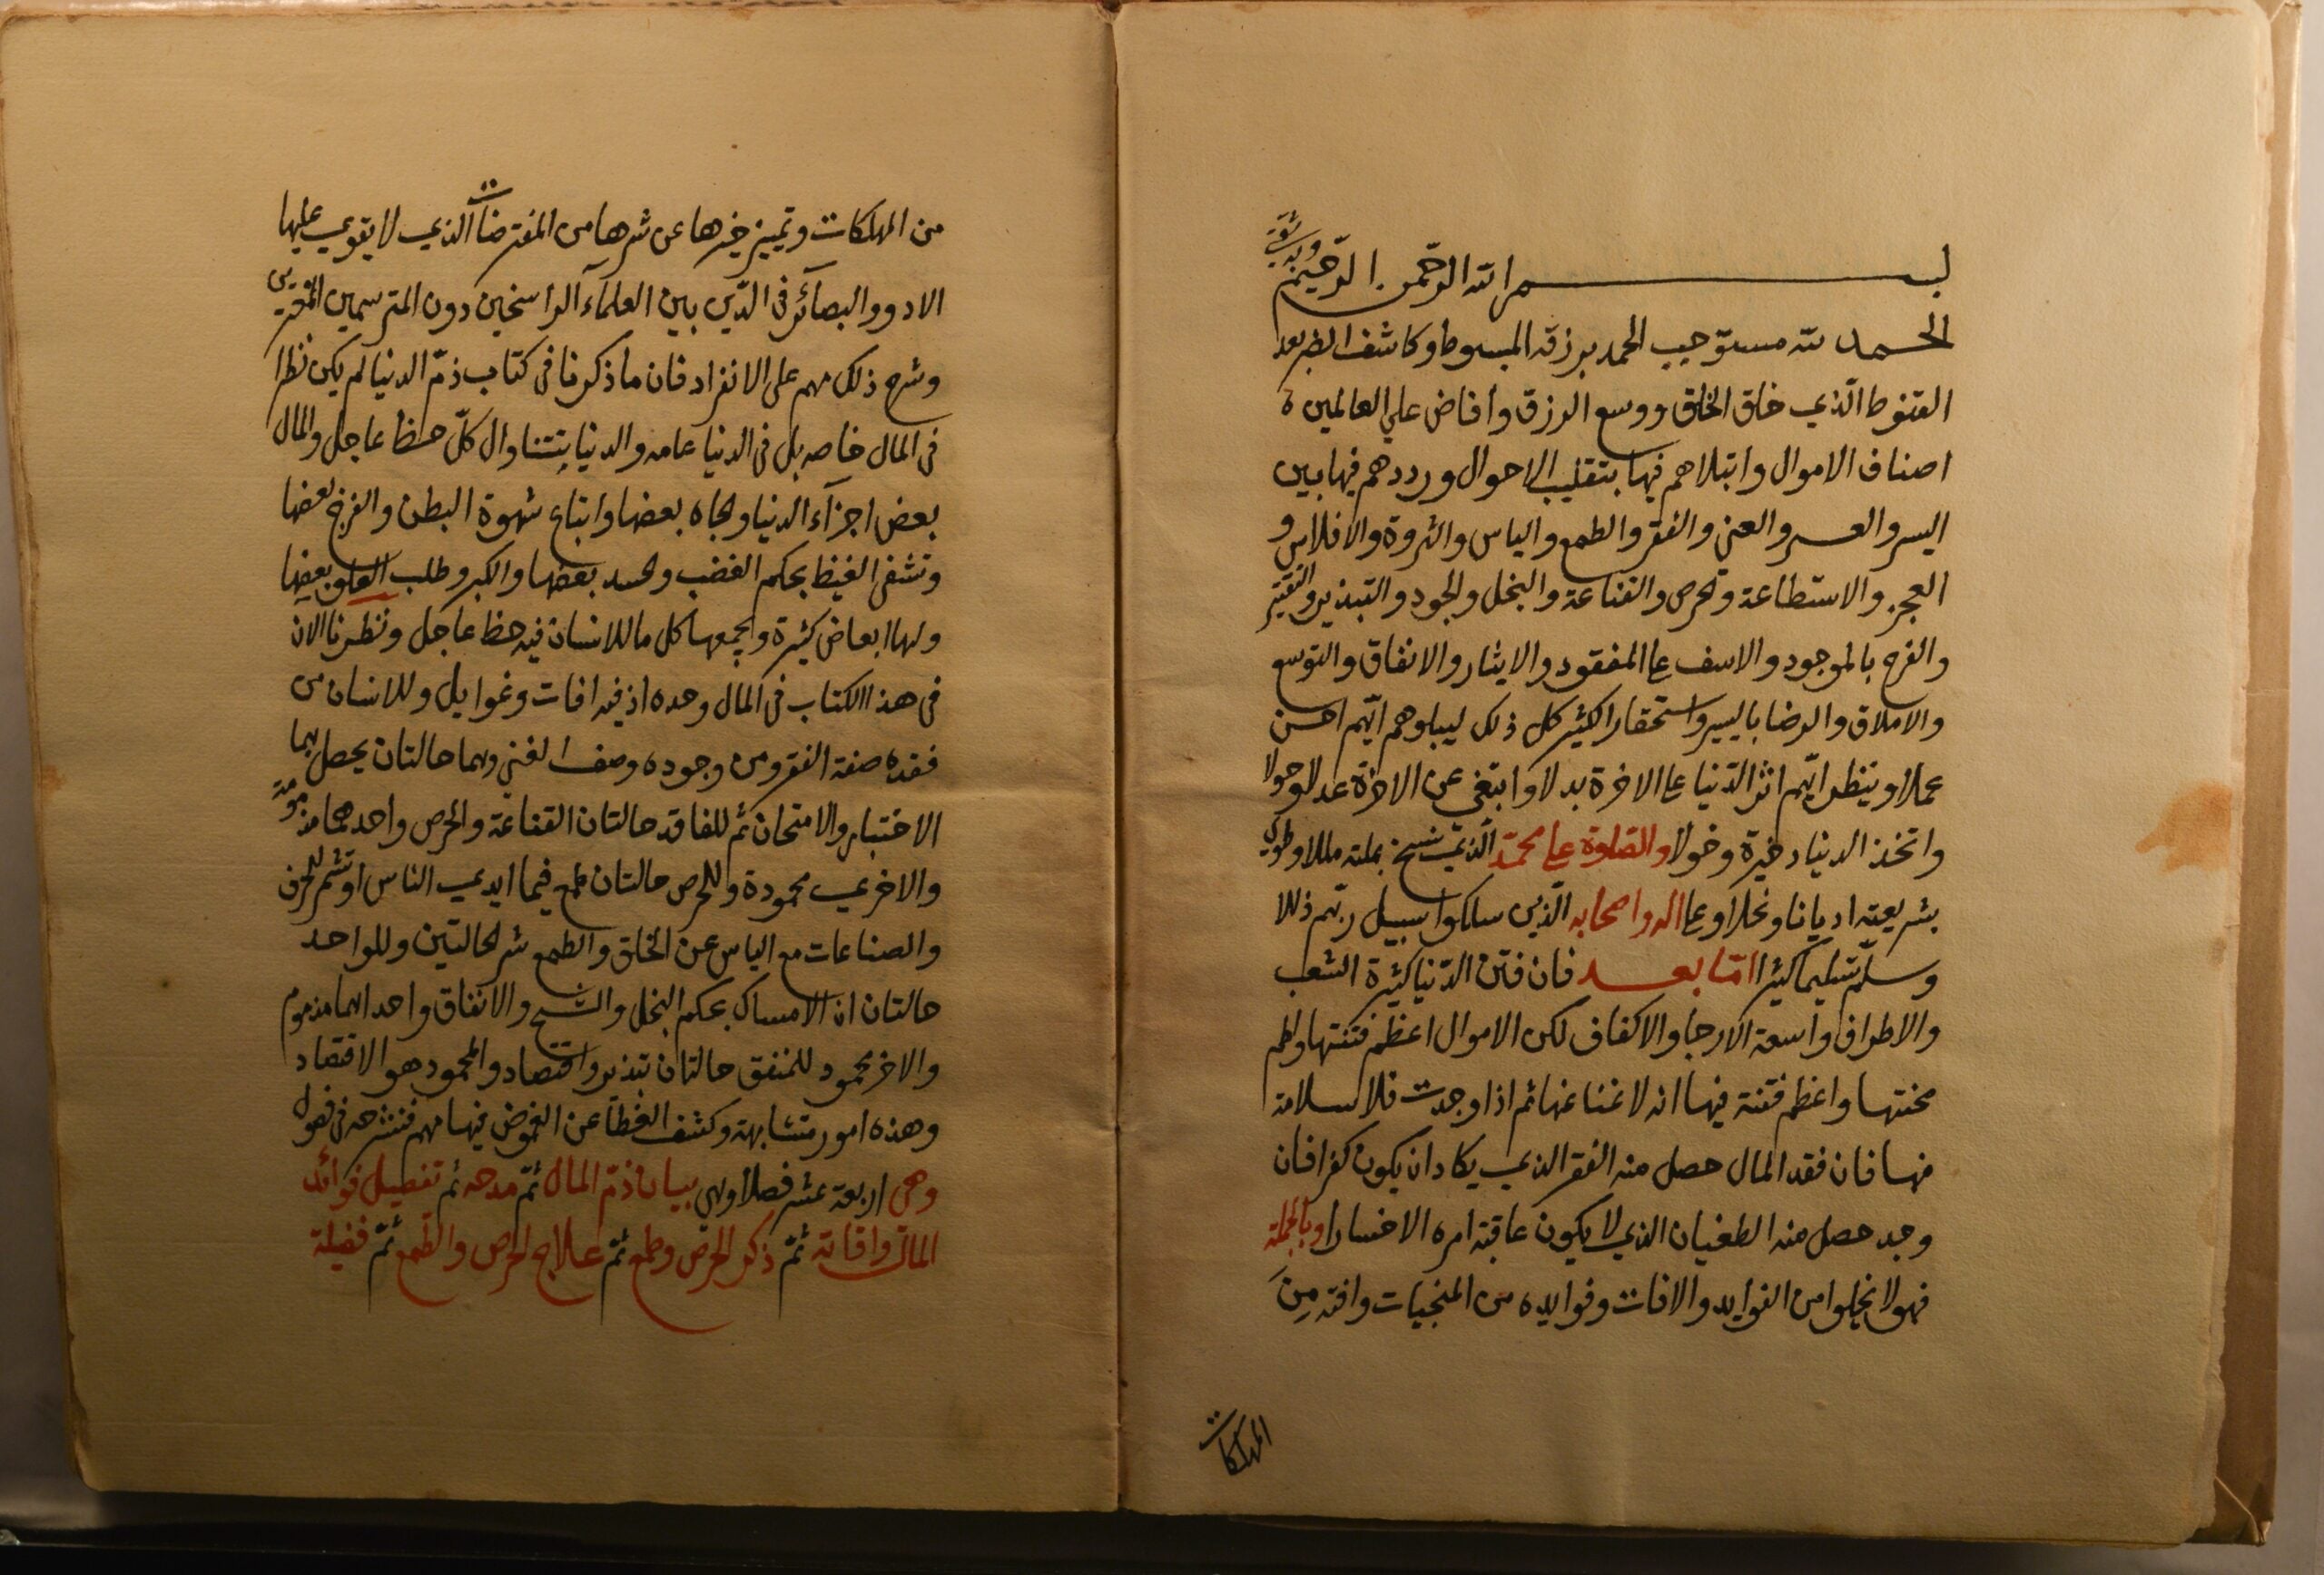 بسم الله الرحمن الرحيم وبه ثقتي
الحمد لله مستوجب الحمد برزقه المبسوط وكاشف الضر بعد
القنوط الذي خلق الخلق ووسع الرزق وافاض علي العالمين
اصناف الاموال وابتلاهم فيها بتقليب الاحوال ورددهم فيها بين
اليسر والعسر والغني والفقر والطمع والياس والثروة والافلاس و
العجز والاستطاعة والحرص والقناعة والبخل والجود والتبذير والتقتير
والفرح بالموجود والاسف على المفقود والايثار والانفاق والتوسع
والاملاق والرضا باليسير واستحقار الكثير كل ذلك ليبلوهم ايهم احسن
عملا وينظر ايهم اثر الدنيا على الاخرة بدلا وابتغي عن الاخرة عدلا وحولا
واتخذ الدنيا دخيرة وخولا والصلوة على محمد الذي نسخ بملته مللا وطوي
بشريعته اديانا ونحلا وعلى اله واصحابه الذين سلكوا سبيل ربهم ذللا
وسلم تسليما كثيرا امّا بعد فان فتن الدنيا كثيرة الشعب
والاطراف واسعة الارجا والاكفاف لكن الاموال اعظم فتنتها واطم
محنتها واعظم فتنة فيها انه لا غنا عنها ثم اذا وجدت فلا سلامة
منها فان فقد المال حصل منه الفقر الذي يكاد ان يكون كفرا فان
وجد حصل منه الطغيان الذي لا يكون عاقبة امره الا خسارا وبالجملة
فهو لا يخلوا من الفوايد والافات وفوايده من المنجيات وافته مِنَ
المهلكات
من المهلكات وتمييز خيرها عن شرها من المفترضات الذي لا يقوي عليها
الا دوو البصائر فى الدين بين العلمآء الراسخين دون المترسمين المغترين
وشرح ذلك مهم على الانفراد فان ما ذكرنا فى كتاب ذم الدنيا لم يكن نظرا
فى المال خاصه بل فى الدنيا عامه والدنيا يتناوال كلّ حظا عاجل والمال
بعض اجزآء الدنيا والجاه بعضها واتباع شهوة البطن والفرج بعضها
وتشفى الغيظ بحكم الغضب والحسد بعضها والكبر وطلب العلو بعضها
ولها ابعاض كثيرة ويجمعها كل ما للانسان فيه حظ عاجل ونظرنا الان
فى هذا الكتاب فى المال وحده اذ فيه افات وغوايل وللانسان من
فقده صفة الفقر ومن وجوده وصف الغني وهما حالتان يحصل بهما
الاختبار والامتحان ثم للفاقد حالتان القناعة والحرص واحدهما مذمومة
والاخري محمودة وللحرص حالتان طمع فيما ايدي الناس او تشمر للحرف
والصناعات مع الياس عن الخلق والطمع شر الحالتين وللواحد
حالتان ان الامساك بحكم البخل والشح والانفاق واحداهما مذموم
والاخر محمود للمنفق حالتان تبذير واقتصاد والمحمود هو الاقتصاد
وهذه امور متشابهة وكشف الغطآ عن الغموض فيها مهم فنشرحه فى فصول
وهى اربعة عشر فصلا ولهي بيان ذمّ المال ثمّ مدحه ثم تفصيل فوائد
المال وافاته ثمّ ذكر الحرص وطمع ثمّ علاج الحرص والطمع ثمّ فضيلة